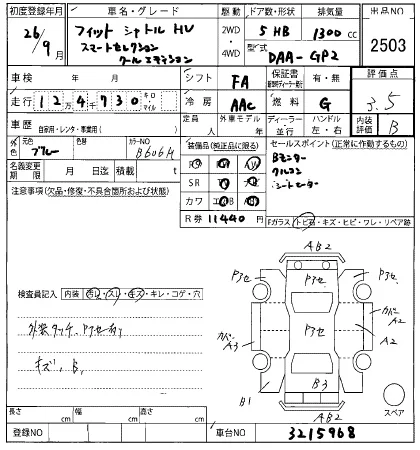 初度登録年月 車名・グレード 駆動 ドア数・形状 排気量 出品NO
26/9月 フィット シャトル HV 2WD・4WD 5 HB 1300 cc 2503
スマートセレクション 型式 DAA-GP2
クールエディション
車検 年 月 シフト FA 保証書 有・無 評価点
走行 12万4千730 キロ マイル 冷房 AAC 燃料 G 3.5
車歴 自家用・レンタ・事業用( ) 定員 人 外車モデル 年 ディーラー 並行 ハンドル 左・右 内装評価 B
外色 元色 ブルー 色替 カラーNO B606M 装備品(純正品に限る) セールスポイント(正常に作動するもの)
名義変更期限 月 日 積載 t
Bモニター
クルコン
シートヒーター
注意事項(欠品・修復・不具合箇所および状態) SR
カワ
R券 11440円 Fガラス・トビ石・キズ・ヒビ・ワレ・リペア跡
検査員記入 内装・汚レ・スレ・キズ・キレ・コゲ・穴
外装タッチ、Pアセ有り
キズ、B、
AB2
Pアセ
Pアセ
Pアセ
カバーA3
カバーA2
A2
B1
B3
AB2
スペア
長さ cm 幅 cm 高さ cm
登録NO 車台NO 3215968